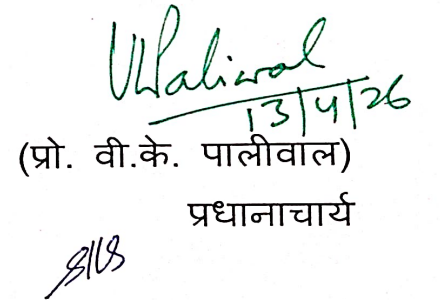 VKPaliwal
13/4/26
(प्रो. वी.के. पालीवाल)
प्रधानाचार्य